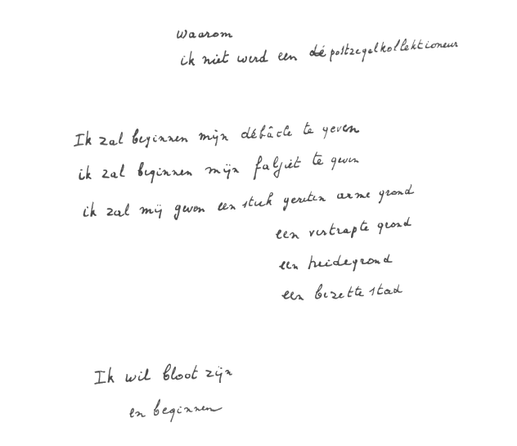 Waarom
ik niet werd een dé postzegelkollektioneur
Ik zal beginnen mijn débâcle te geven
ik zal beginnen mijn faljiet te geven
ik zal mij geven een stuk gereten arme grond
een vertrapte grond
een heidegrond
een bezette stad
Ik wil bloot zijn
en beginnen